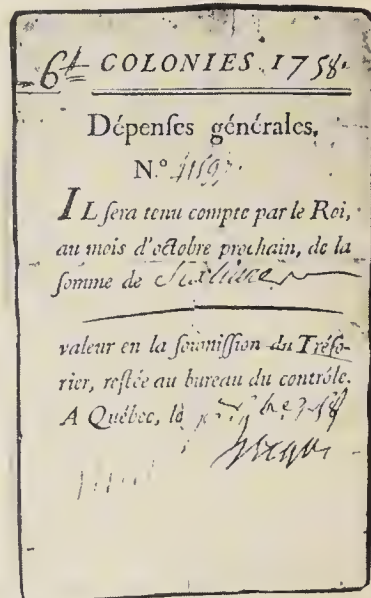 6ᵗᵗ COLONIES. 1758.
Dépenſes générales.
N.º
IL ſera tenu compte par le Roi,
au mois d'octobre prochain, de la
ſomme de Six livres
valeur en la ſoumiſſion du Tréſo-
rier, reſtée au bureau du contrôle.
A Québec, le